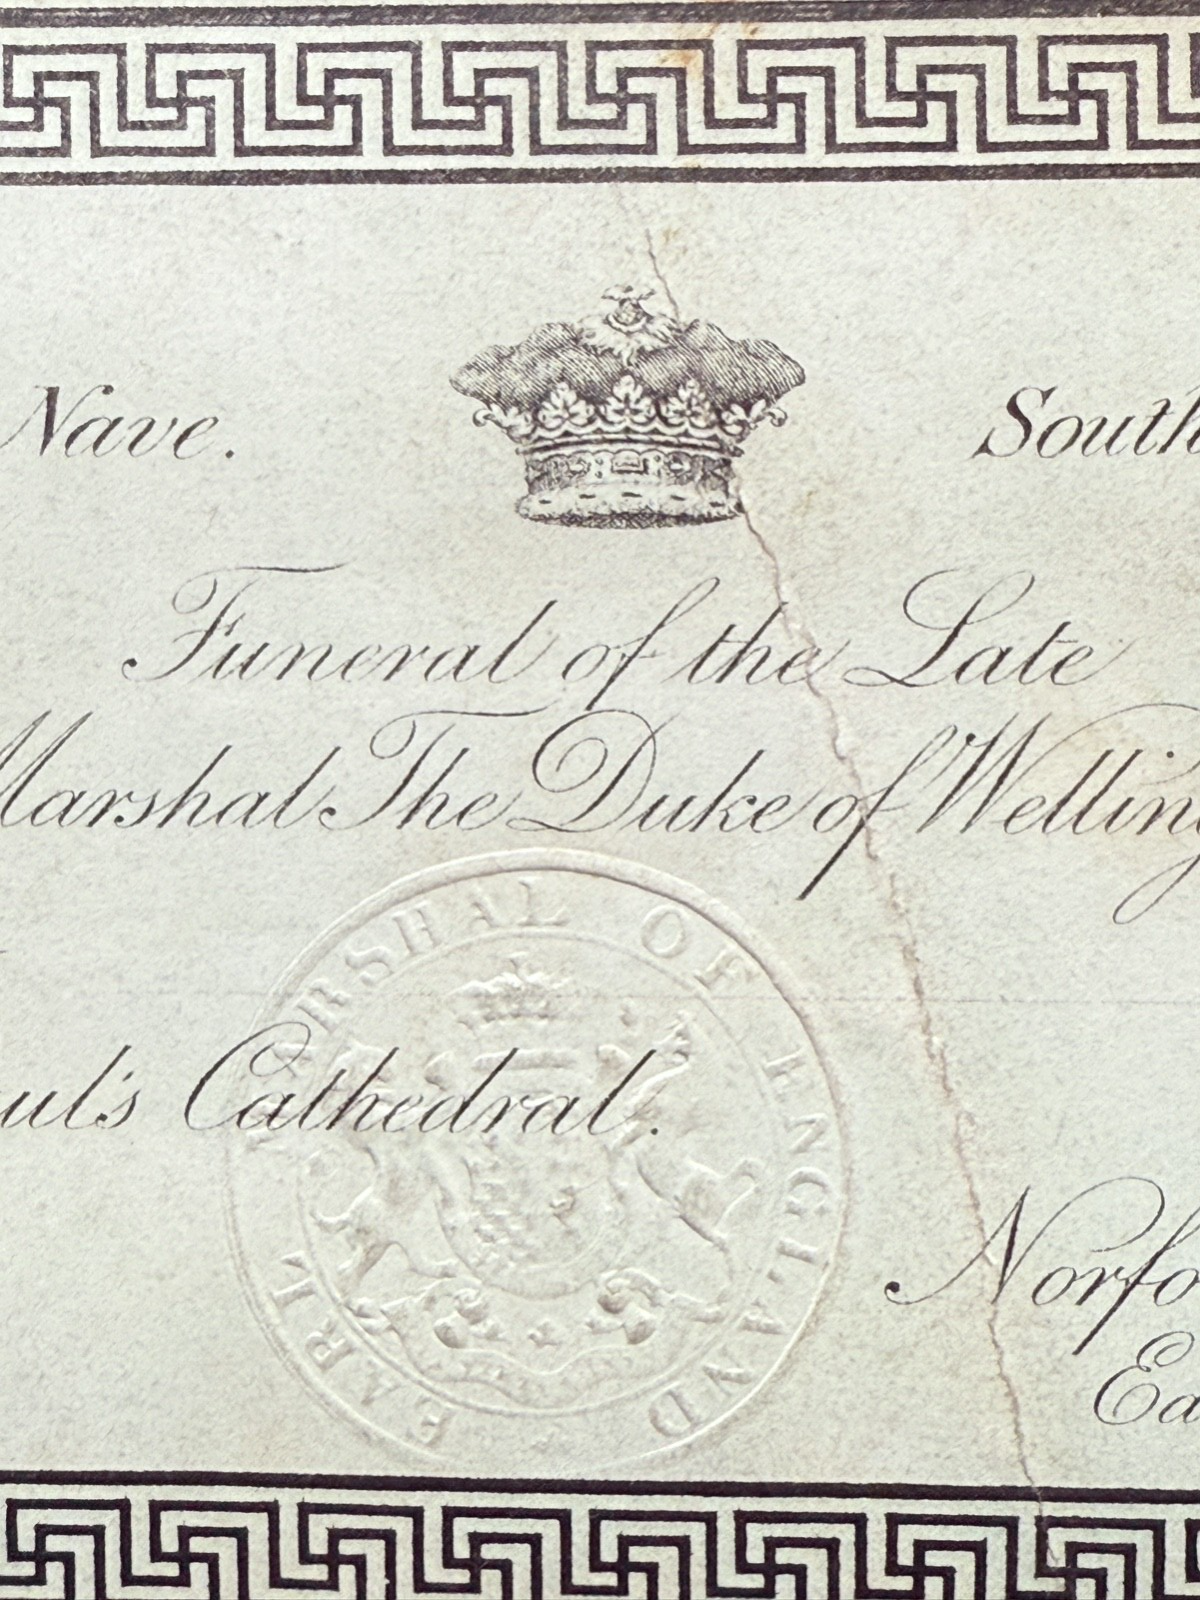 Nave.
South
Funeral of the Late
Marshal The Duke of Welling
EARL MARSHAL OF ENGLAND
aul's Cathedral.
Norfo
Ea